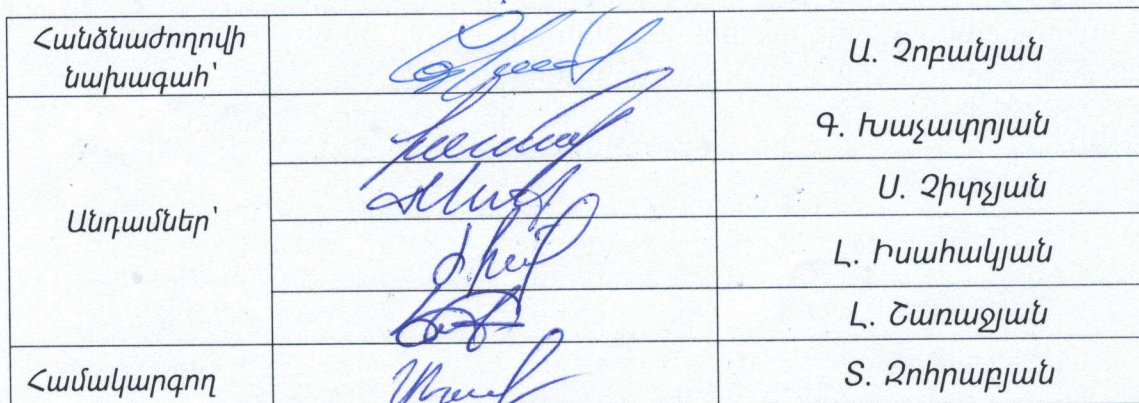 Հանձնաժողովի
նախագահ՝
Ա. Չոբանյան
Անդամներ՝
Գ. Խաչատրյան
Ս. Չիտչյան
Լ. Իսահակյան
Լ. Շառաջյան
Համակարգող
Տ. Զոհրաբյան